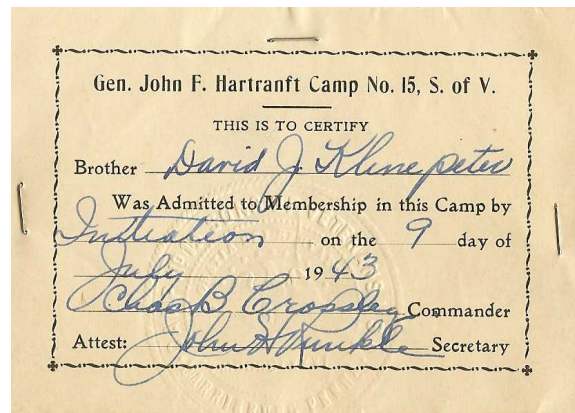 Gen. John F. Hartranft Camp No. 15, S. of V.
THIS IS TO CERTIFY
Brother David J. Klinepeter
Was Admitted to Membership in this Camp by
Initiation on the 9 day of
July 1943
Chas B Cropsley Commander
Attest: John H Runkle Secretary